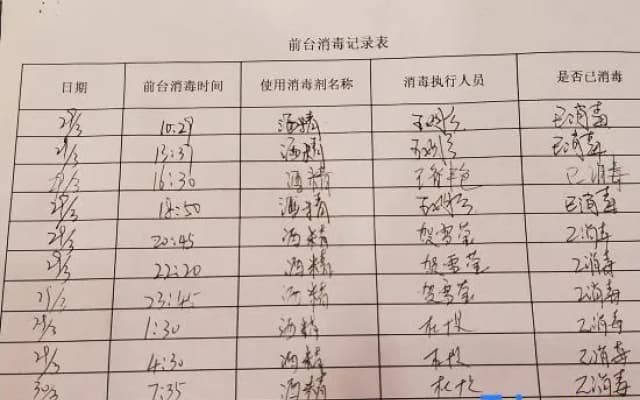 前台消毒记录表
日期 前台消毒时间 使用消毒剂名称 消毒执行人员 是否已消毒
29/3 10:29 酒精 已消毒
29/3 13:37 酒精 已消毒
29/3 16:30 酒精 已消毒
29/3 18:50 酒精 已消毒
29/3 20:45 酒精 贺雪莹 已消毒
29/3 22:20 酒精 贺雪莹 已消毒
29/3 23:45 酒精 贺雪莹 已消毒
29/3 1:30 酒精 已消毒
29/3 4:30 酒精 已消毒
30/3 7:35 酒精 已消毒